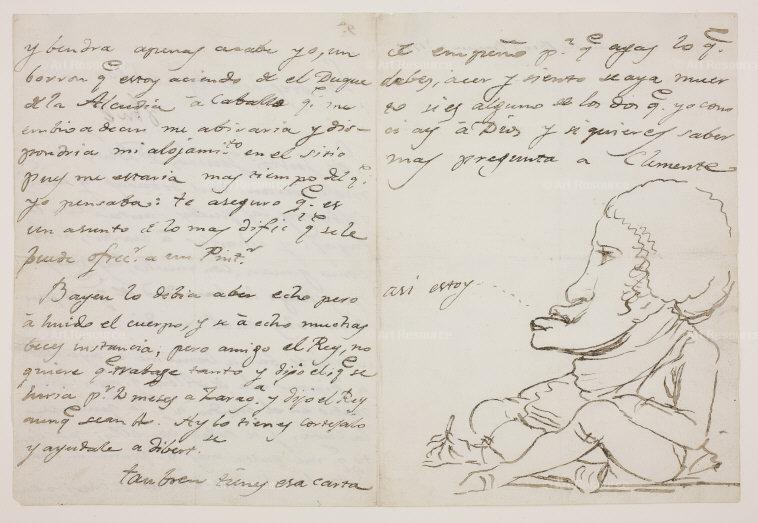 y bendra apenas acabe yo, un
borron q.e estoy aciendo de el Duque
de la Alcudia à Caballo q.e me
embio a decir me abisaria y dis-
pondria mi alojami.to en el sitio
pues me estaria mas tiempo del q.e
yo pensaba: te aseguro q.e es
un asunto de lo mas dificil q.e se le
puede ofrec.r a un Pint.r
Bayeu lo debia aber echo pero
à huido el cuerpo, y se à echo muchas
beces instancia, pero amigo el Rey, no
quiere q.e trabage tanto y dijo el q.e se
hiria p.r 2 meses a Zarag.a y dijo el Rey
aunq.e sean 4. Ay lo tienes cortejalo
y ayudale a dibert.se
tanbien tienes esa carta
de empeño p.a q.e agas lo q.e
debes, acer y siento se aya muer
to si es alguno de los dos q.e yo cono
ci ay à Dios y si quieres saber
mas pregunta a Clemente
asi estoy
© Art Resource
© Art Resource
© Art Resource
© Art Resource